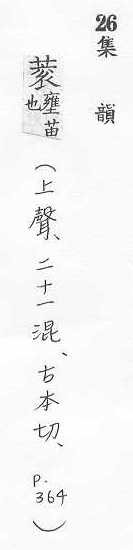 26 集韻
蓘 壅苗也 (上聲、二十一混、古本切、p.364)